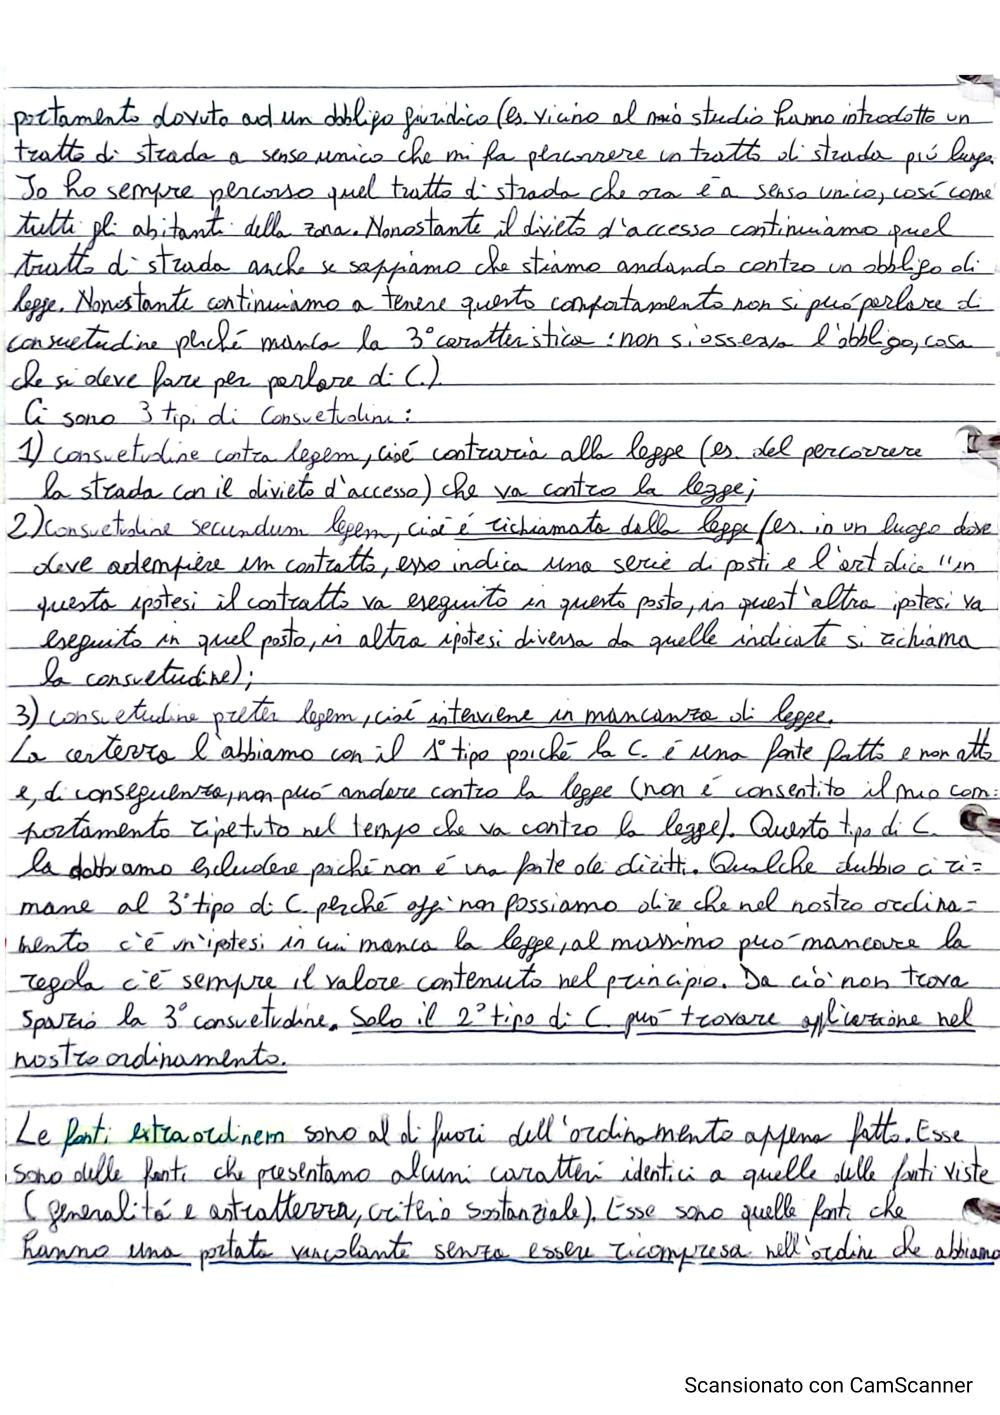 portamento dovuto ad un obbligo giuridico (es. vicino al mio studio hanno introdotto un
tratto di strada a senso unico che mi fa percorrere un tratto di strada piú lungo.
Io ho sempre percorso quel tratto di strada che ora é a senso unico, cosí come
tutti gli abitanti della zona. Nonostante il divieto d'accesso continuiamo quel
tratto di strada anche se sappiamo che stiamo andando contro un obbligo di
legge. Nonostante continuiamo a tenere questo comportamento non si puó parlare di
consuetudine perché manca la 3° caratteristica: non si osserva l'obbligo, cosa
che si deve fare per parlare di C.).
Ci sono 3 tipi di Consuetudini:
1) consuetudine contra legem, cioé contraria alla legge (es. del percorrere
la strada con il divieto d'accesso) che va contro la legge;
2) consuetudine secundum legem, cioé é richiamata dalla legge (es. in un luogo dove
deve adempiere un contratto, esso indica una serie di posti e l'art dice "in
questa ipotesi il contratto va eseguito in questo posto, in quest'altra ipotesi va
eseguito in quel posto, in altra ipotesi diversa da quelle indicate si richiama
la consuetudine);
3) consuetudine preter legem, cioé interviene in mancanza di legge.
La certezza l'abbiamo con il 1° tipo poiché la C. é una fonte fatto e non atto
e, di conseguenza, non puó andare contro la legge (non é consentito il mio com=
portamento ripetuto nel tempo che va contro la legge). Questo tipo di C.
la dobbiamo escludere poiché non é una fonte di diritti. Qualche dubbio ci ri=
mane al 3° tipo di C. perché oggi non possiamo dire che nel nostro ordina=
mento c'é un'ipotesi in cui manca la legge, al massimo puó mancare la
regola c'é sempre il valore contenuto nel principio. Da ció non trova
spazio la 3° consuetudine. Solo il 2° tipo di C. puó trovare applicazione nel
nostro ordinamento.
Le fonti extra ordinem sono al di fuori dell'ordinamento appena fatto. Esse
sono delle fonti che presentano alcuni caratteri identici a quelle delle fonti viste
(generalitá e astrattezza, criterio sostanziale). Esse sono quelle fonti che
hanno una portata vincolante senza essere ricompresa nell'ordine che abbiamo
Scansionato con CamScanner